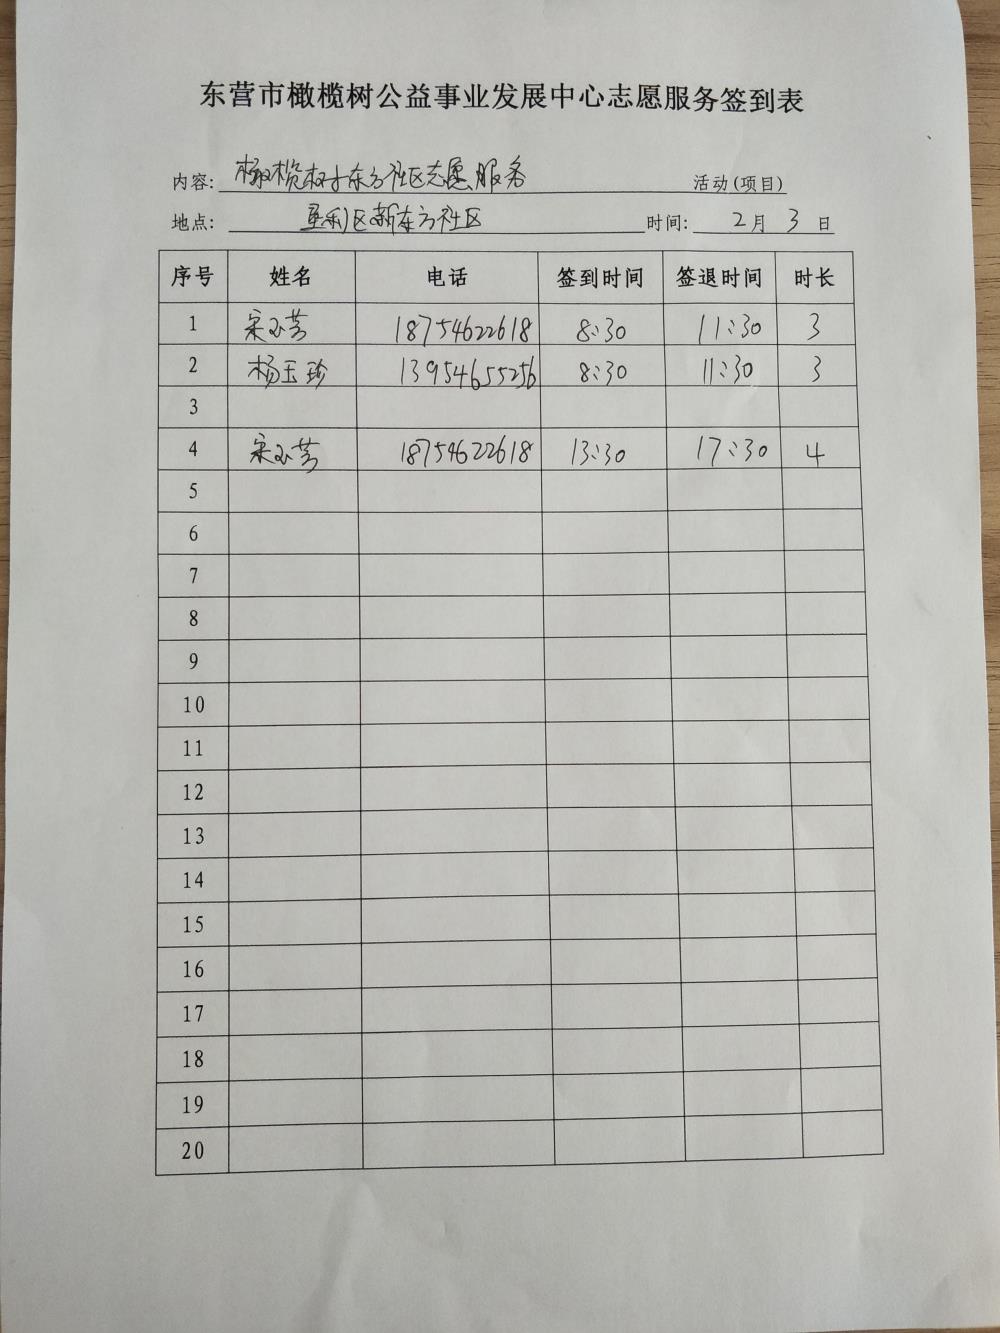 东营市橄榄树公益事业发展中心志愿服务签到表
内容: 橄榄树东方社区志愿服务 活动(项目)
地点: 垦利区新东方社区 时间: 2月3日
序号 姓名 电话 签到时间 签退时间 时长
1 宋玉芳 18754622618 8:30 11:30 3
2 杨玉珍 13954655256 8:30 11:30 3
3
4 宋玉芳 18754622618 13:30 17:30 4
5
6
7
8
9
10
11
12
13
14
15
16
17
18
19
20